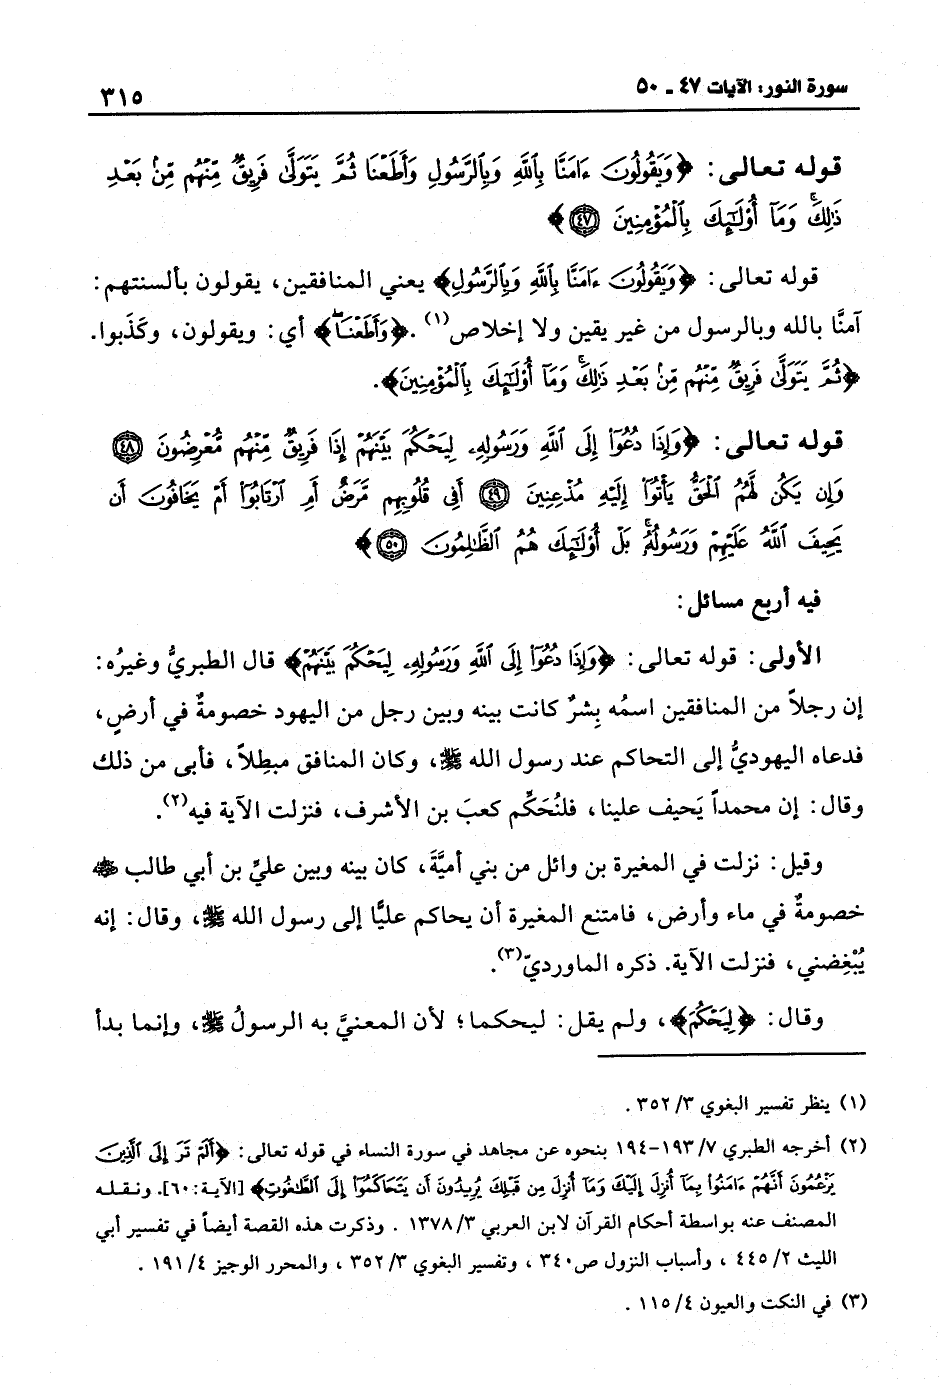 سورة النور: الآيات ٤٧ ـ ٥٠
٣١٥
قوله تعالى: ﴿وَيَقُولُونَ ءَامَنَّا بِٱللَّهِ وَبِٱلرَّسُولِ وَأَطَعْنَا ثُمَّ يَتَوَلَّىٰ فَرِيقٌ مِّنْهُم مِّنۢ بَعْدِ
ذَٰلِكَۚ وَمَآ أُوْلَٰٓئِكَ بِٱلْمُؤْمِنِينَ ٤٧﴾
قوله تعالى: ﴿وَيَقُولُونَ ءَامَنَّا بِٱللَّهِ وَبِٱلرَّسُولِ﴾ يعني المنافقين، يقولون بألسنتهم:
آمنَّا بالله وبالرسول من غير يقين ولا إخلاص(١). ﴿وَأَطَعْنَا﴾ أي: ويقولون، وكَذَبوا.
﴿ثُمَّ يَتَوَلَّىٰ فَرِيقٌ مِّنْهُم مِّنۢ بَعْدِ ذَٰلِكَۚ وَمَآ أُوْلَٰٓئِكَ بِٱلْمُؤْمِنِينَ﴾.
قوله تعالى: ﴿وَإِذَا دُعُوٓاْ إِلَى ٱللَّهِ وَرَسُولِهِۦ لِيَحْكُمَ بَيْنَهُمْ إِذَا فَرِيقٌ مِّنْهُم مُّعْرِضُونَ ٤٨
وَإِن يَكُن لَّهُمُ ٱلْحَقُّ يَأْتُوٓاْ إِلَيْهِ مُذْعِنِينَ ٤٩ أَفِى قُلُوبِهِم مَّرَضٌ أَمِ ٱرْتَابُوٓاْ أَمْ يَخَافُونَ أَن
يَحِيفَ ٱللَّهُ عَلَيْهِمْ وَرَسُولُهُۥۚ بَلْ أُوْلَٰٓئِكَ هُمُ ٱلظَّٰلِمُونَ ٥٠﴾
فيه أربع مسائل:
الأولى: قوله تعالى: ﴿وَإِذَا دُعُوٓاْ إِلَى ٱللَّهِ وَرَسُولِهِۦ لِيَحْكُمَ بَيْنَهُمْ﴾ قال الطبريُّ وغيرُه:
إن رجلاً من المنافقين اسمُه بِشرٌ كانت بينه وبين رجل من اليهود خصومةٌ في أرضٍ،
فدعاه اليهوديُّ إلى التحاكم عند رسول الله ﷺ، وكان المنافق مبطِلاً، فأبى من ذلك
وقال: إن محمداً يَحيف علينا، فلنُحَكِّم كعبَ بن الأشرف، فنزلت الآية فيه(٢).
وقيل: نزلت في المغيرة بن وائل من بني أميَّةَ، كان بينه وبين عليِّ بن أبي طالب ﵁
خصومةٌ في ماء وأرض، فامتنع المغيرة أن يحاكم عليًّا إلى رسول الله ﷺ، وقال: إنه
يُبْغِضني، فنزلت الآية. ذكره الماورديّ(٣).
وقال: ﴿لِيَحْكُمَ﴾، ولم يقل: ليحكما؛ لأن المعنيَّ به الرسولُ ﷺ، وإنما بدأ
(١) ينظر تفسير البغوي ٣/ ٣٥٢ .
(٢) أخرجه الطبري ٧/ ١٩٣-١٩٤ بنحوه عن مجاهد في سورة النساء في قوله تعالى: ﴿أَلَمْ تَرَ إِلَى ٱلَّذِينَ
يَزْعُمُونَ أَنَّهُمْ ءَامَنُواْ بِمَآ أُنزِلَ إِلَيْكَ وَمَآ أُنزِلَ مِن قَبْلِكَ يُرِيدُونَ أَن يَتَحَاكَمُوٓاْ إِلَى ٱلطَّٰغُوتِ﴾ [الآية: ٦٠]. ونقله
المصنف عنه بواسطة أحكام القرآن لابن العربي ٣/ ١٣٧٨ . وذكرت هذه القصة أيضاً في تفسير أبي
الليث ٢/ ٤٤٥ ، وأسباب النزول ص٣٤٠ ، وتفسير البغوي ٣/ ٣٥٢ ، والمحرر الوجيز ٤/ ١٩١ .
(٣) في النكت والعيون ٤/ ١١٥ .